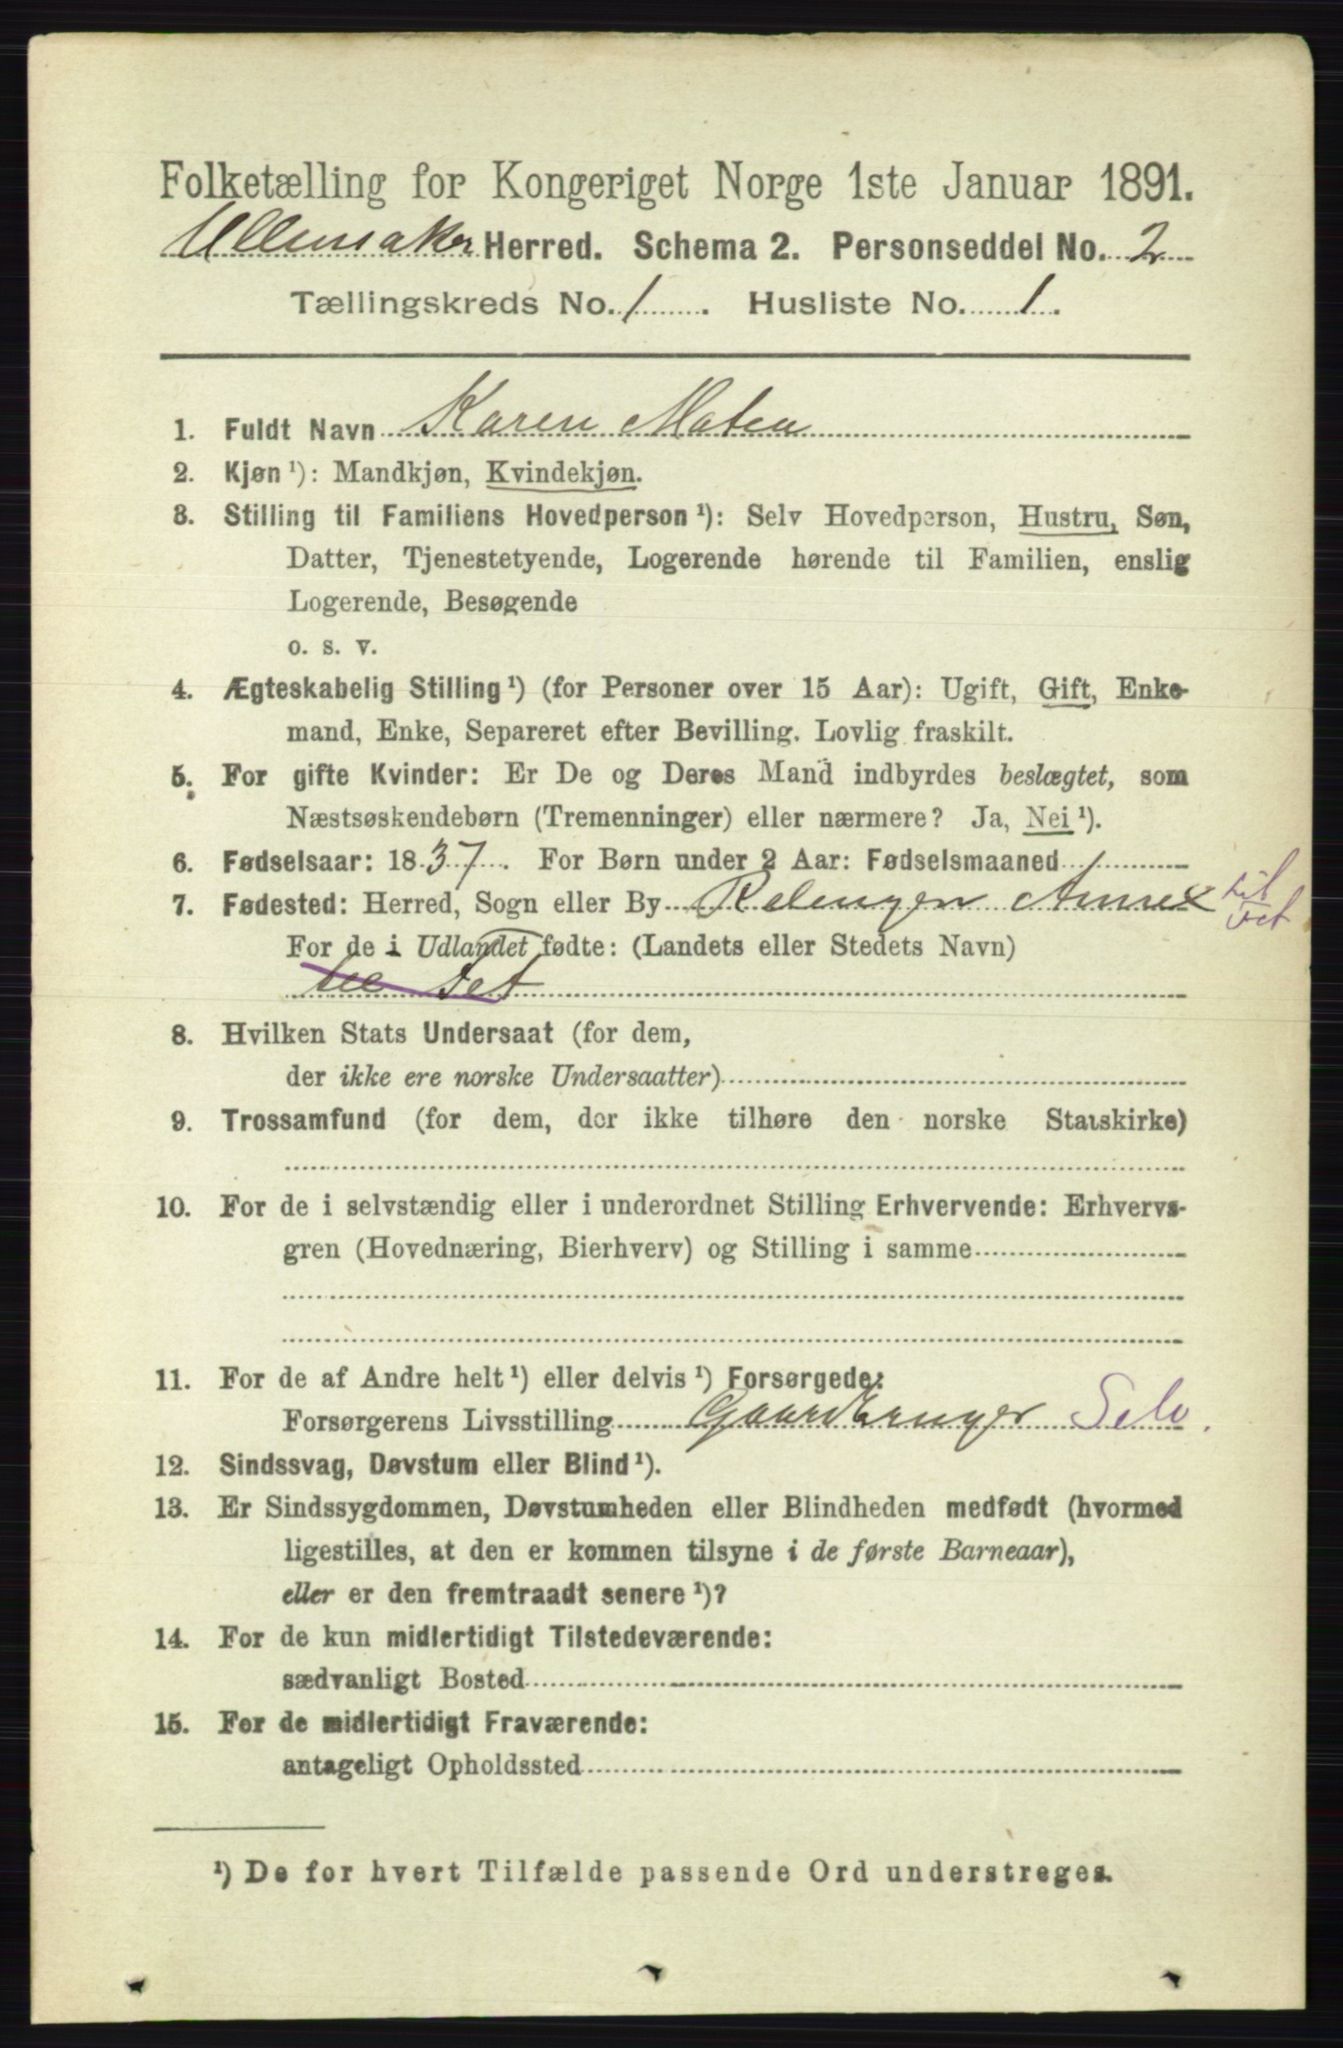 Folketælling for Kongeriget Norge 1ste Januar 1891.
Ullensaker Herred. Schema 2. Personseddel No. 2
Tællingskreds No. 1. Husliste No. 1.
1. Fuldt Navn Karen Matea
2. Kjøn ¹): Mandkjøn, Kvindekjøn.
3. Stilling til Familiens Hovedperson ¹): Selv Hovedperson, Hustru, Søn,
Datter, Tjenestetyende, Logerende hørende til Familien, enslig
Logerende, Besøgende
o. s. v.
4. Ægteskabelig Stilling ¹) (for Personer over 15 Aar): Ugift, Gift, Enke-
mand, Enke, Separeret efter Bevilling. Lovlig fraskilt.
5. For gifte Kvinder: Er De og Deres Mand indbyrdes beslægtet, som
Næstsøskendebørn (Tremenninger) eller nærmere? Ja, Nei ¹).
6. Fødselsaar: 1837. For Børn under 2 Aar: Fødselsmaaned
7. Fødested: Herred, Sogn eller By Relingen Annex til
Fet
For de i Udlandet fødte: (Landets eller Stedets Navn)
til Fet
8. Hvilken Stats Undersaat (for dem,
der ikke ere norske Undersaatter)
9. Trossamfund (for dem, der ikke tilhøre den norske Statskirke)
10. For de i selvstændig eller i underordnet Stilling Erhvervende: Erhvervs-
gren (Hovednæring, Bierhverv) og Stilling i samme
11. For de af Andre helt ¹) eller delvis ¹) Forsørgede:
Forsørgerens Livsstilling Gaardbruger Selv.
12. Sindssvag, Døvstum eller Blind ¹).
13. Er Sindssygdommen, Døvstumheden eller Blindheden medfødt (hvormed
ligestilles, at den er kommen tilsyne i de første Barneaar),
eller er den fremtraadt senere ¹)?
14. For de kun midlertidigt Tilstedeværende:
sædvanligt Bosted
15. For de midlertidigt Fraværende:
antageligt Opholdssted
¹) De for hvert Tilfælde passende Ord understreges.